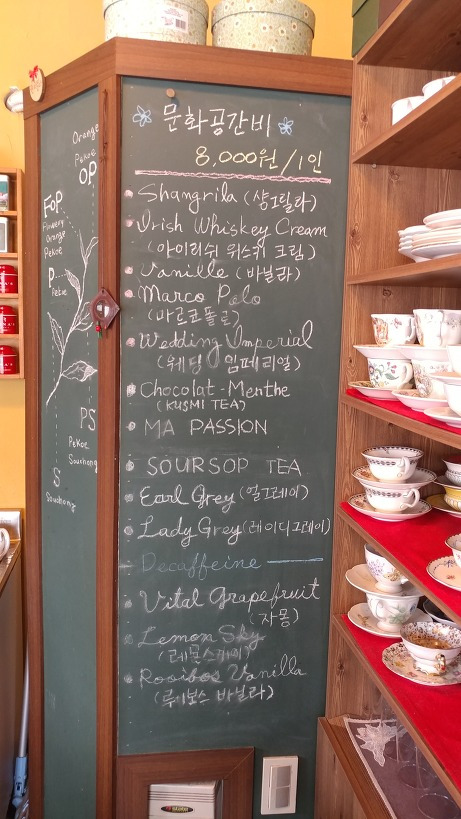 Orange
Pekoe
OP
FOP
Flowery
Orange
Pekoe
P
Pekoe
PS
Pekoe
Souchong
S
Souchong
문화공간비
8,000원/1인
Shangrila (샹그릴라)
Irish Whiskey Cream
(아이리쉬 위스키 크림)
Vanille (바닐라)
Marco Polo
(마르코폴로)
Wedding Imperial
(웨딩 임페리얼)
Chocolat-Menthe
(KUSMI TEA)
MA PASSION
SOURSOP TEA
Earl Grey (얼그레이)
Lady Grey (레이디그레이)
Decaffeine
Vital Grapefruit
(자몽)
Lemon Sky
(레몬스카이)
Rooibos Vanilla
(루이보스 바닐라)